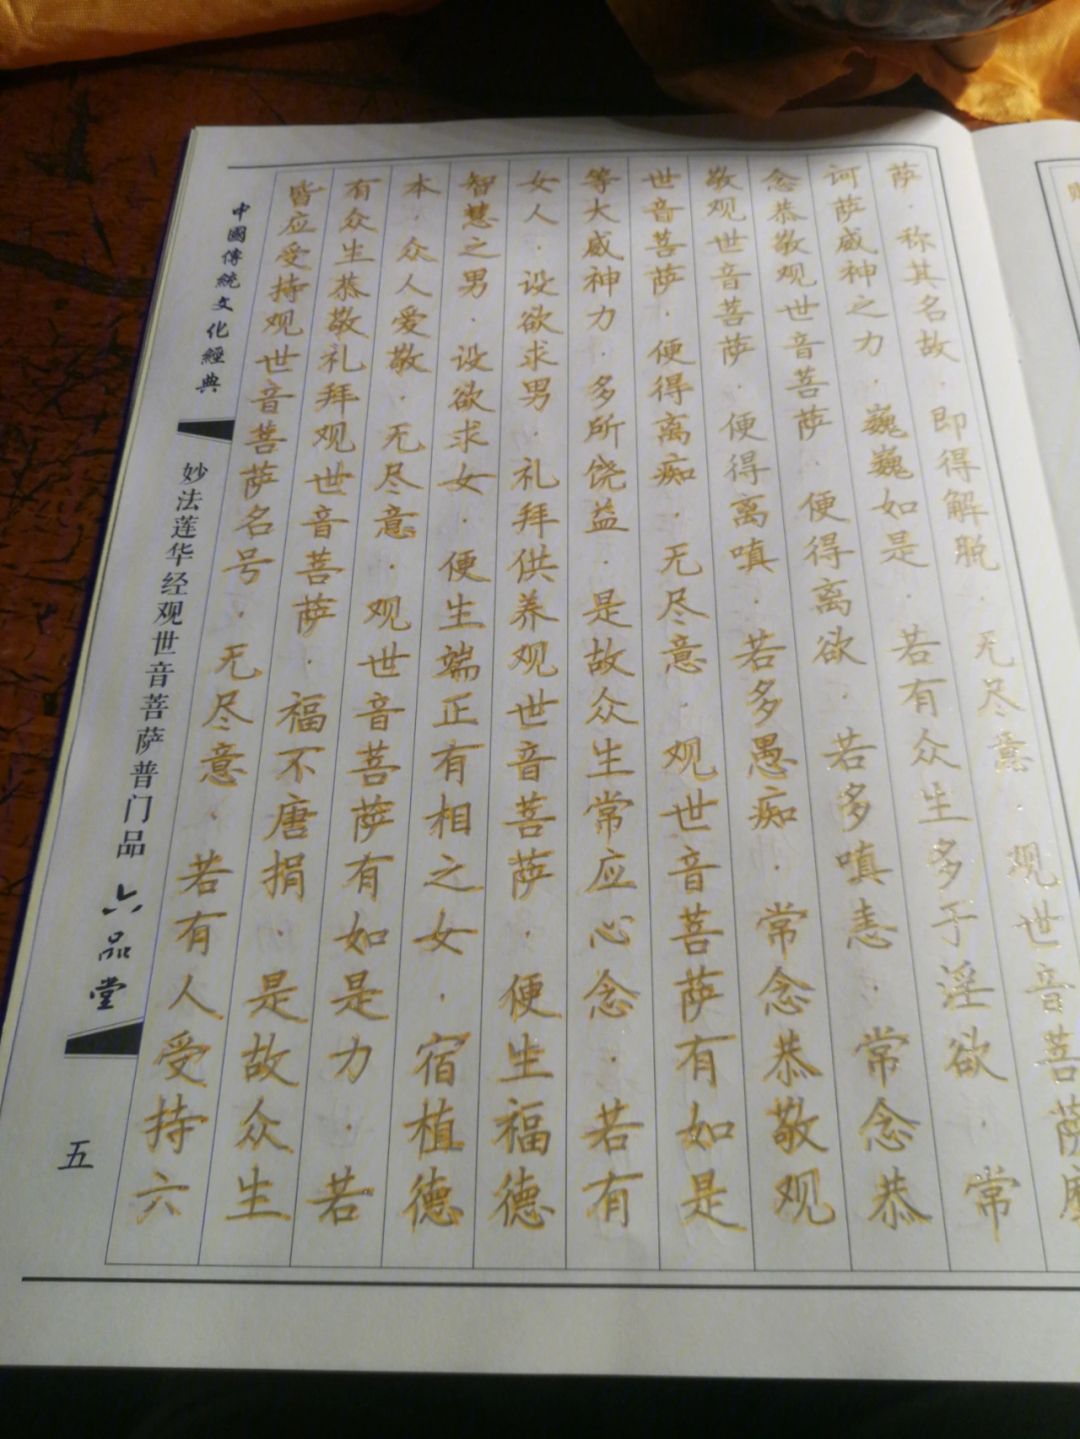 萨．称其名故．即得解脱．无尽意．观世音菩萨摩
诃萨威神之力．巍巍如是．若有众生多于淫欲．常
念恭敬观世音菩萨．便得离欲．若多嗔恚．常念恭
敬观世音菩萨．便得离嗔．若多愚痴．常念恭敬观
世音菩萨．便得离痴．无尽意．观世音菩萨有如是
等大威神力．多所饶益．是故众生常应心念．若有
女人．设欲求男．礼拜供养观世音菩萨．便生福德
智慧之男．设欲求女．便生端正有相之女．宿植德
本．众人爱敬．无尽意．观世音菩萨有如是力．若
有众生恭敬礼拜观世音菩萨．福不唐捐．是故众生
皆应受持观世音菩萨名号．无尽意．若有人受持六
中國傳統文化經典
妙法莲华经观世音菩萨普门品
六品堂
五